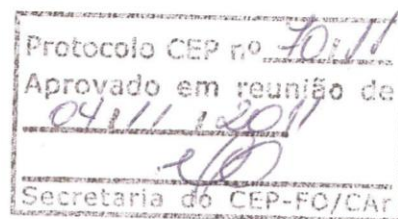 Protocolo CEP n.º 70/11
Aprovado em reunião de
04/11/2011
Secretaria do CEP-FO/CAr